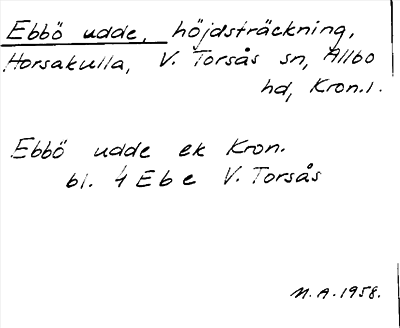 Ebbö udde, höjdsträckning,
Horsakulla, V. Torsås sn, Allbo
hd, Kron.l.
Ebbö udde ek Kron.
bl. 4 E b e V. Torsås
M.A. 1958.